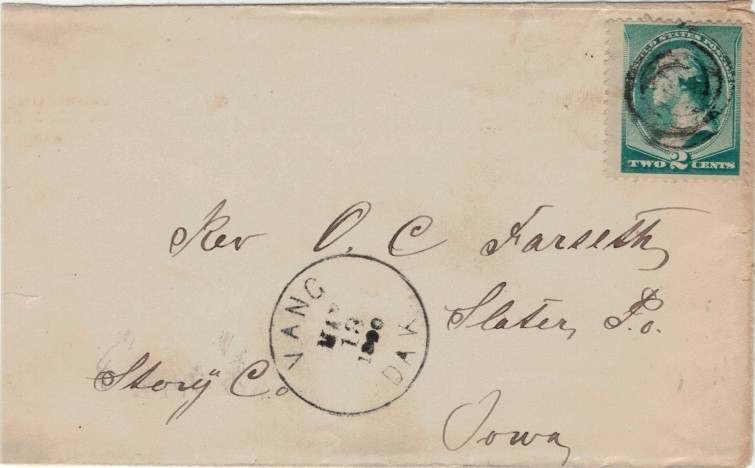 UNITED STATES POSTAGE
TWO 2 CENTS
Rev O. C. Farseth,
Slater, P.o.
Story Co
Iowa,
VANG
DAK